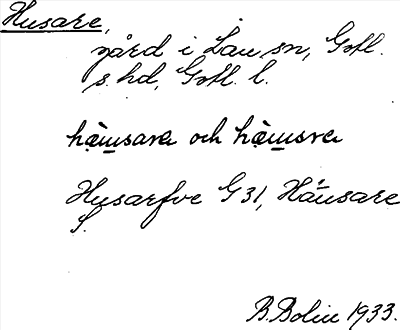 Husare,
gård i Lau sn, Gotl.
s. hd, Gotl. l.
hä̀u̲sara och hä̀u̲sra
Husarfve G 31, Häusare
S.
B. Bolin 1933.